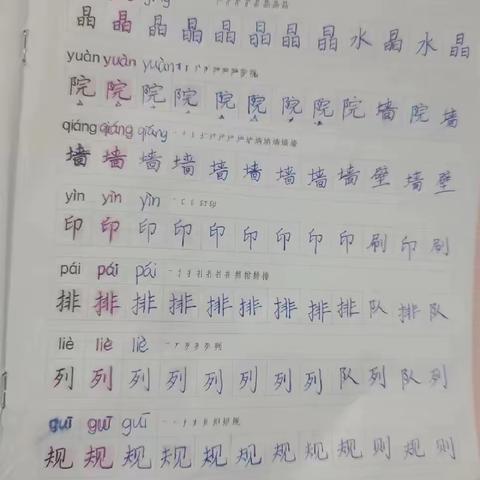 晶 晶 晶 晶 晶 晶 晶 晶 水 晶 水 晶
yuàn yuàn yuàn
院 院 院 院 院 院 院 院 院 墙 院 墙
qiáng qiáng qiáng
墙 墙 墙 墙 墙 墙 墙 墙 墙 壁 墙 壁
yìn yìn yìn
印 印 印 印 印 印 印 印 印 刷 印 刷
pái pái pái
排 排 排 排 排 排 排 排 排 队 排 队
liè liè liè
列 列 列 列 列 列 列 列 队 列 队 列
guī guī guī
规 规 规 规 规 规 规 规 规 则 规 则